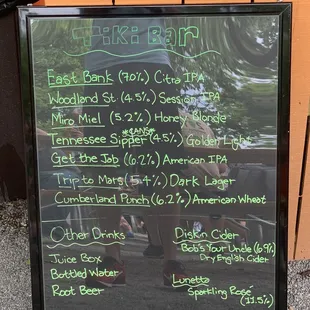 Tiki Bar
East Bank (7.0%) Citra IPA
Woodland St (4.5%) Session IPA
Miro Miel (5.2%) Honey Blonde
*CANS*
Tennessee Sipper (4.5%) Golden Light
Get the Job (6.2%) American IPA
Trip to Mars (5.4%) Dark Lager
Cumberland Punch (6.2%) American Wheat
Other Drinks
Juice Box
Bottled Water
Root Beer
Diskin Cider
Bob's Your Uncle (6.9%)
Dry English Cider
Lunetta
Sparkling Rosé
(11.5%)